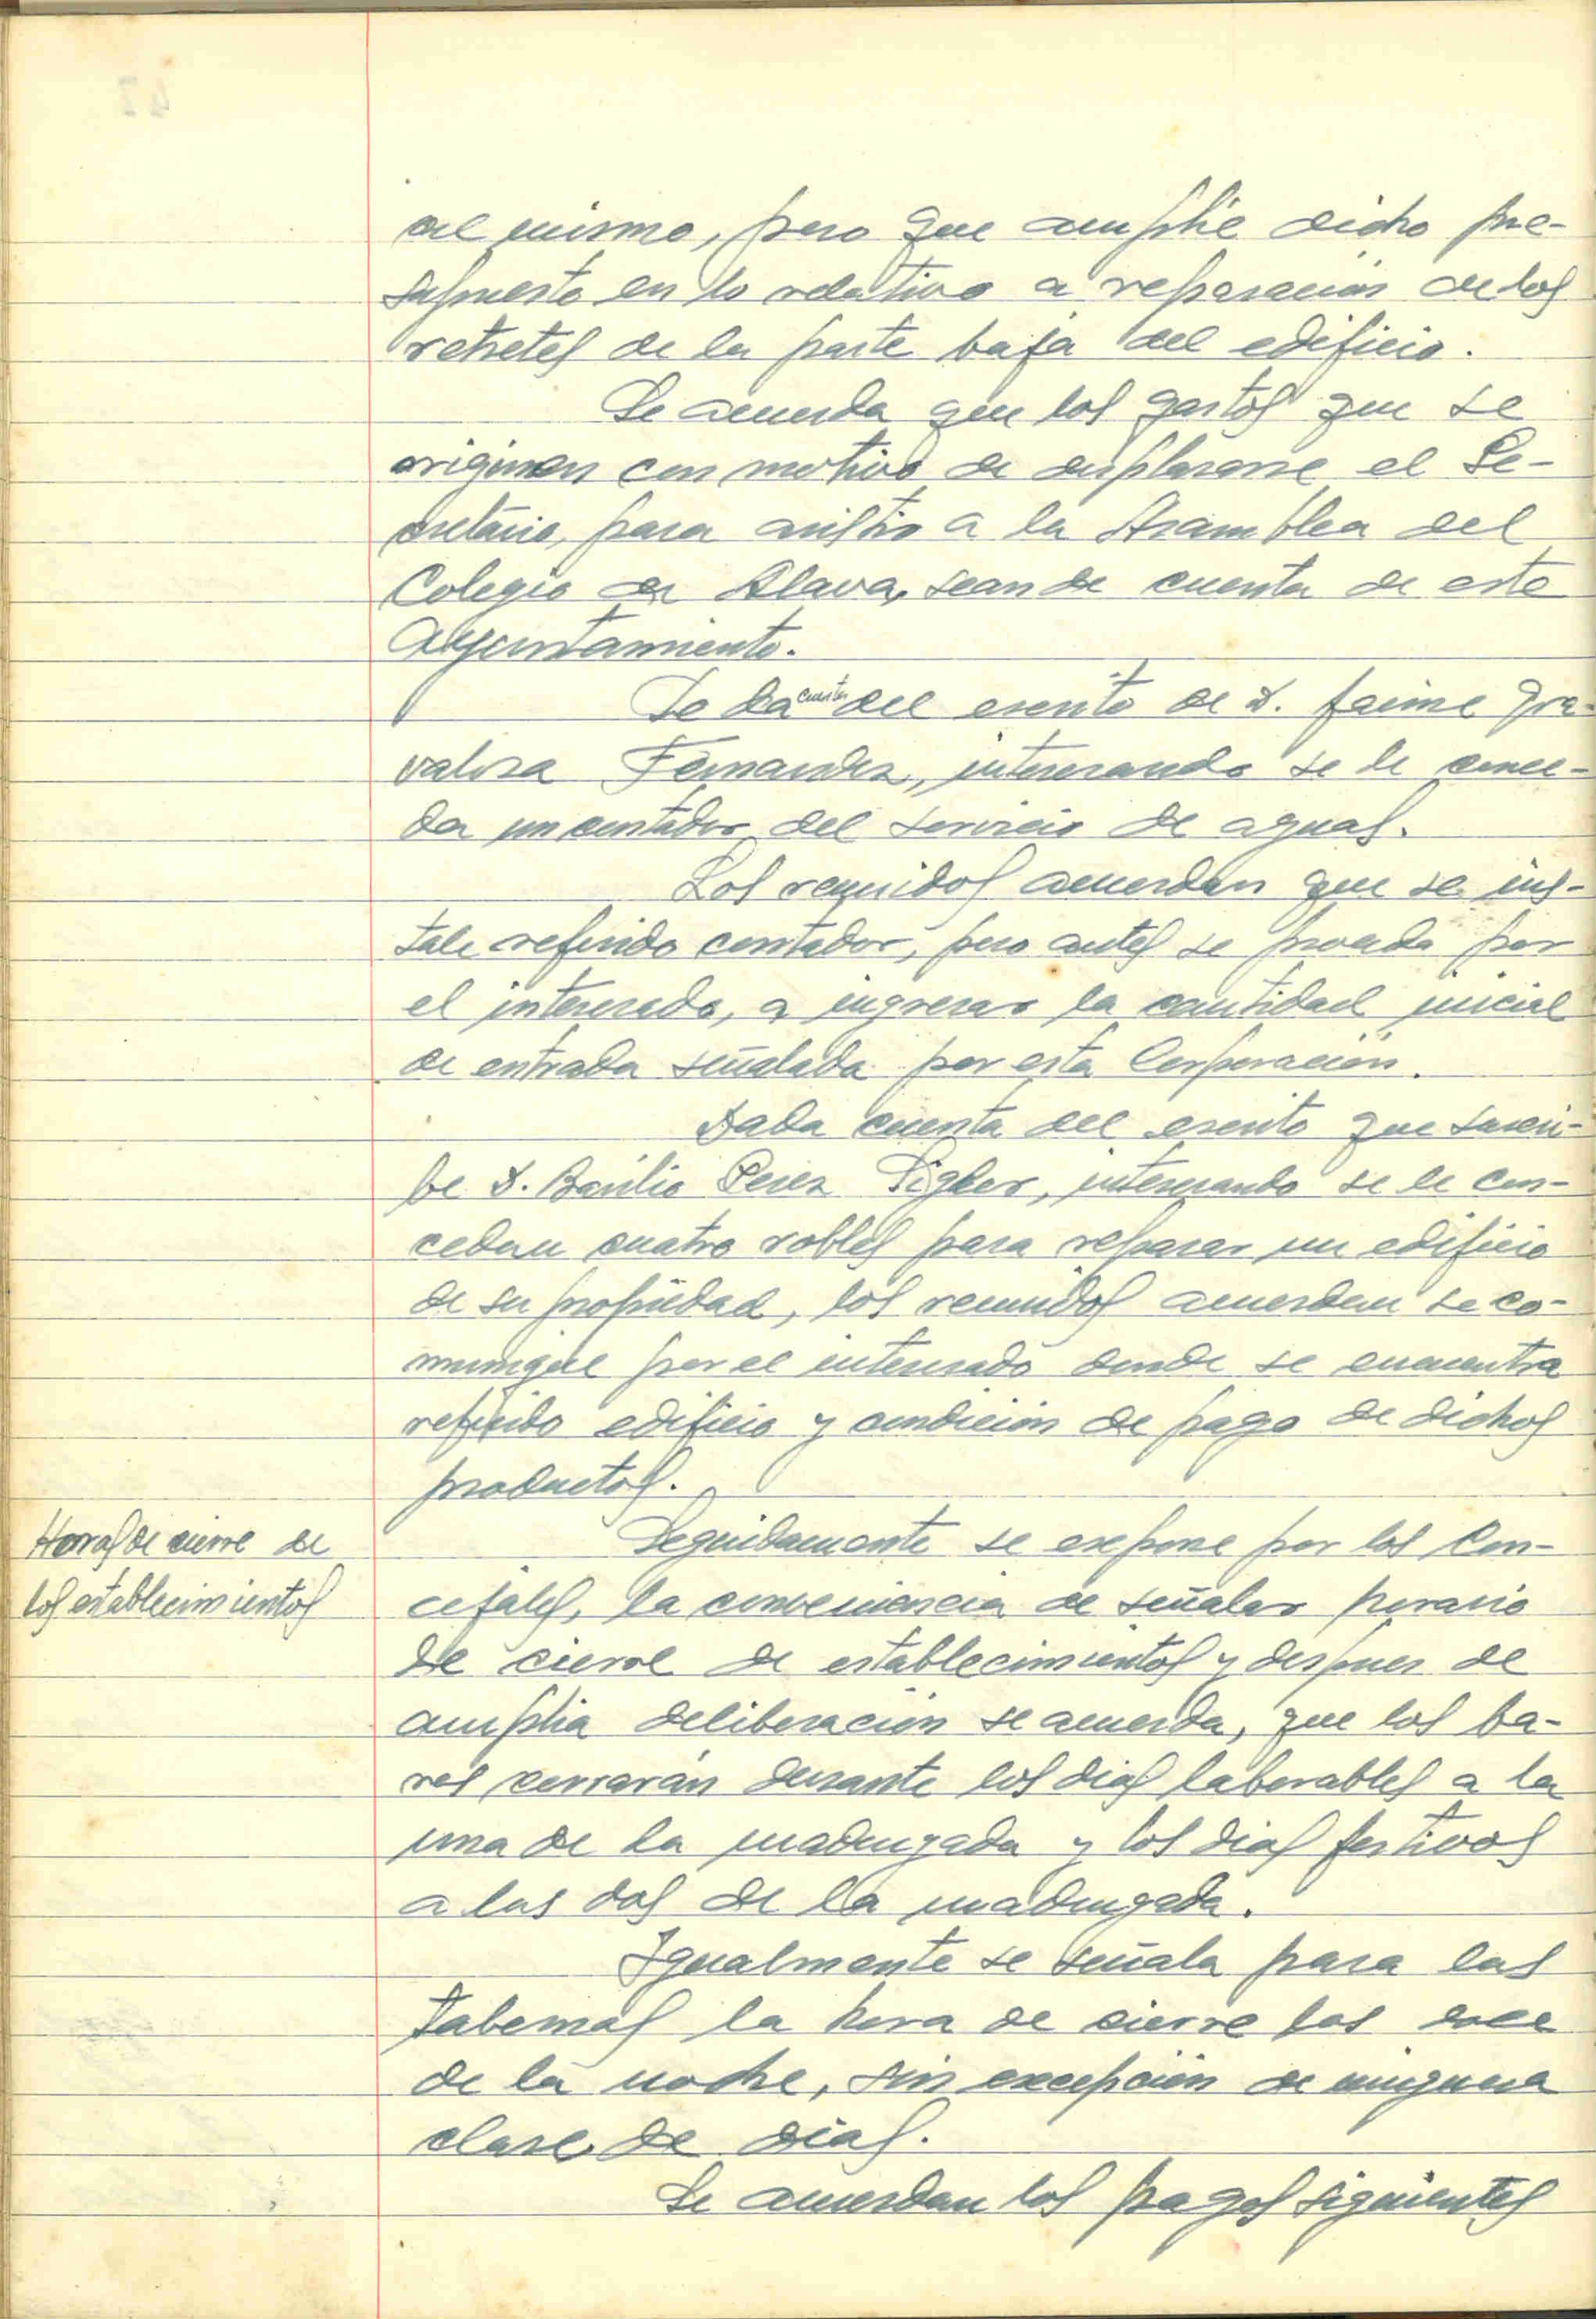 al mismo, pero que amplie dicho pre-
supuesto en lo relativo a reparación de los
retretes de la parte baja del edificio.
Se acuerda que los gastos que se
originen con motivo de desplazarse el Se-
cretário, para asistir a la Asamblea del
Colegio de Alava, sean de cuenta de este
Ayuntamiento.
Se da cuenta del escrito de D. Jaime Gra-
valosa Fernandez, interesando se le conce-
da un contador del servicio de aguas.
Los reunidos acuerdan que se ins-
tale referido contador, pero antes se proceda por
el interesado, a ingresar la cantidad inicial
de entrada señalada por esta Corporación.
Dada cuenta del escrito que suscri-
be D. Basilio Perez Pigler, interesando se le con-
cedan cuatro robles para reparar un edificio
de su propiedad, los reunidos acuerdan se co-
munique por el interesado donde se encuentra
referido edificio y condición de pago de dichos
productos.
Horas de cierre de
los establecimientos
Seguidamente se expone por los Con-
cejales, la conveniencia de señalar horario
de cierre de establecimientos y despues de
amplia deliberación se acuerda, que los ba-
res cerrarán durante los dias laborables a la
una de la madrugada y los dias festivos
a las dos de la madrugada.
Igualmente se señala para las
tabernas la hora de cierre las doce
de la noche, sin excepción de ninguna
clase de dias.
Se acuerdan los pagos siguientes